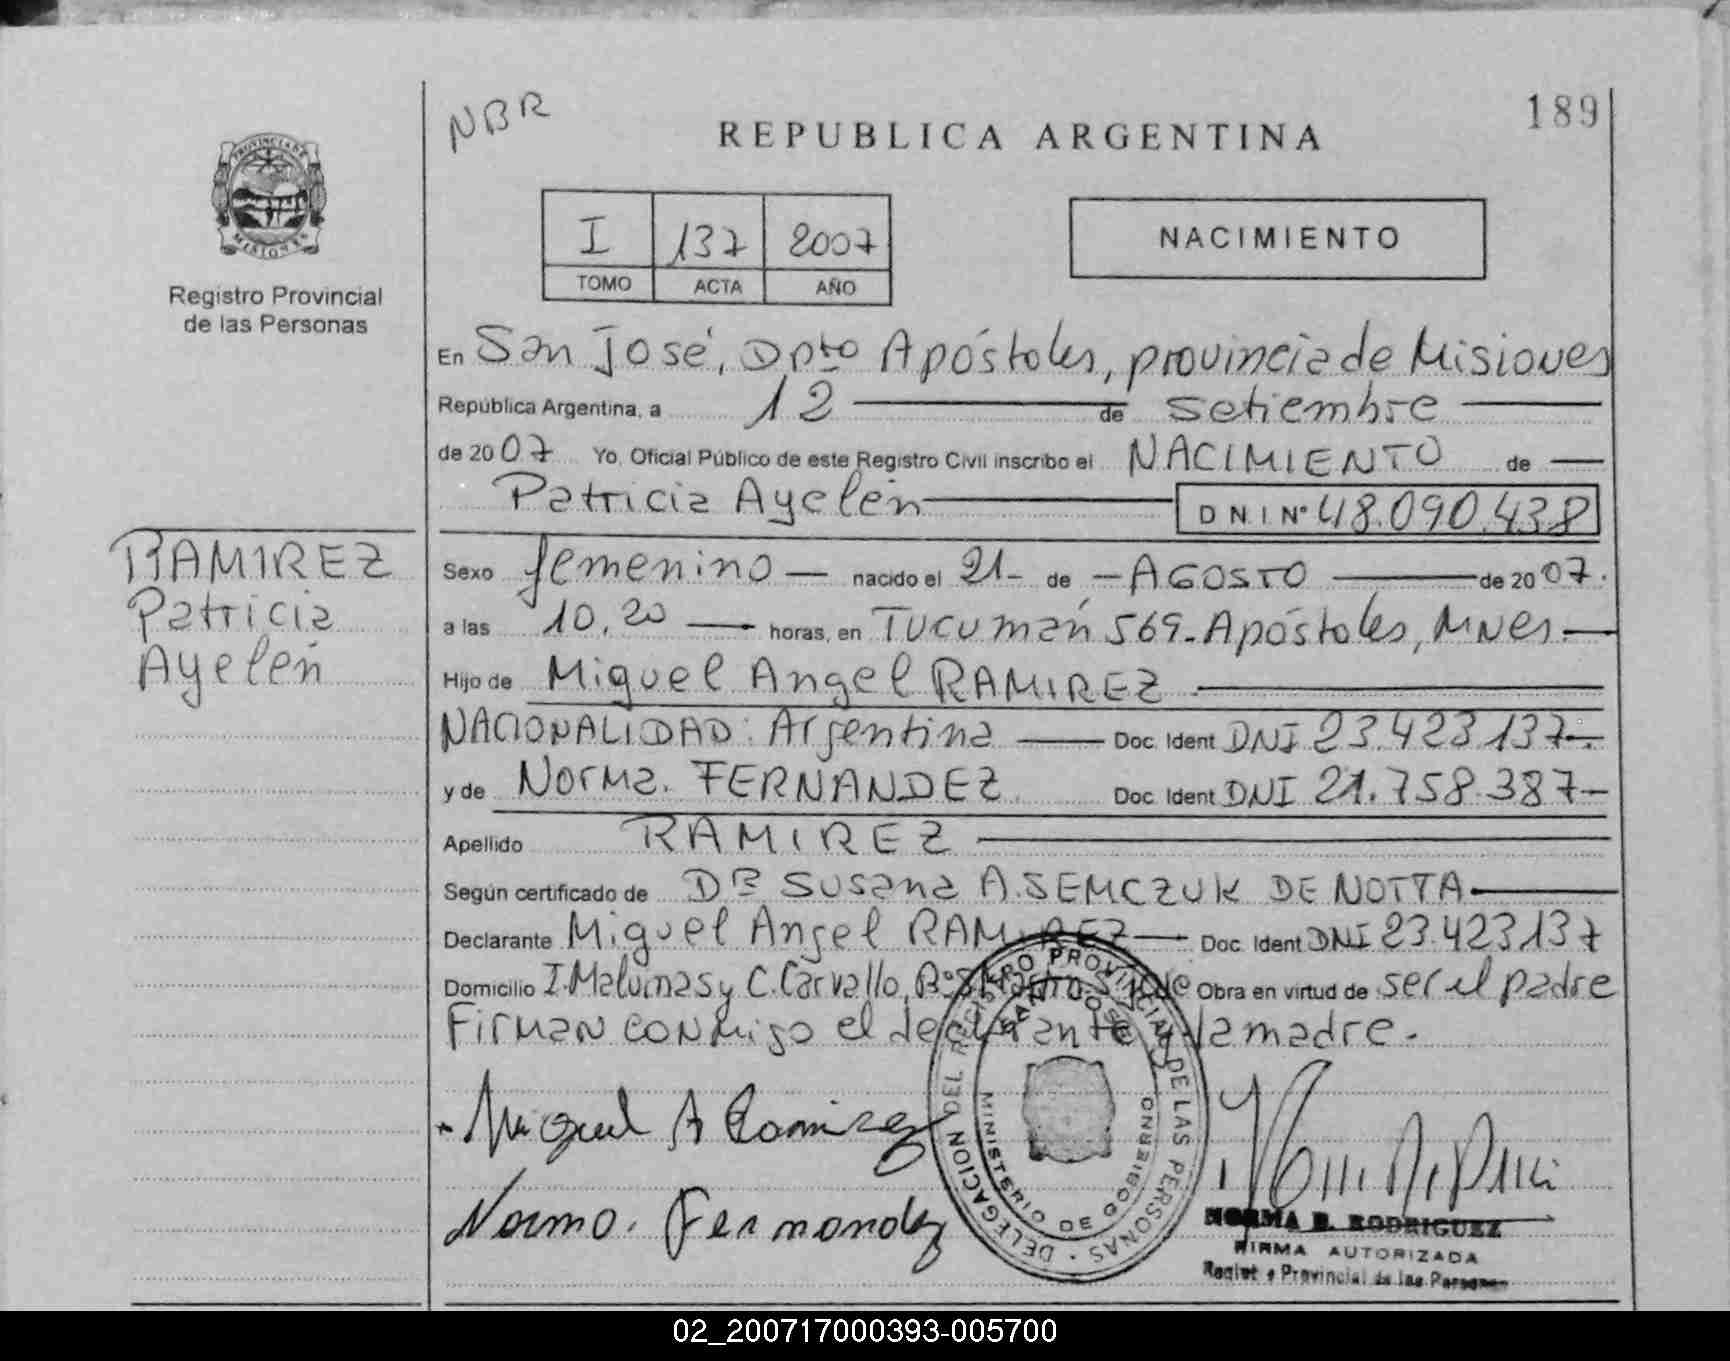 NBR
189
REPUBLICA ARGENTINA
PROVINCIA DE
MISIONES
Registro Provincial
de las Personas
I 137 2007
TOMO ACTA AÑO
NACIMIENTO
En San José, Dpto Apóstoles, provincia de Misiones
República Argentina, a 12 de setiembre
de 2007 Yo, Oficial Público de este Registro Civil inscribo el NACIMIENTO de
Patricia Ayelén DNI Nº 48.090.438
RAMIREZ
Patricia
Ayelén
Sexo femenino nacido el 21 de AGOSTO de 2007.
a las 10,20 horas, en Tucumán 569. Apóstoles, Mnes.
Hijo de Miguel Angel RAMIREZ
NACIONALIDAD: Argentina Doc. Ident DNI 23.423.137.
y de Norma. FERNANDEZ Doc. Ident DNI 21.758.387
Apellido RAMIREZ
Según certificado de Dra Susana A. SEMCZUK DE NOTTA
Declarante Miguel Angel RAMIREZ Doc. Ident DNI 23.423.137
Domicilio I. Malvinas y C. Carvallo, Obra en virtud de ser el padre
Firman conmigo el declarante y la madre.
Miguel A Ramirez
Norma. Fernandez
DELEGACION DEL REGISTRO PROVINCIAL DE LAS PERSONAS
SAN JOSE
MINISTERIO DE GOBIERNO
NORMA B. RODRIGUEZ
FIRMA AUTORIZADA
Registro Provincial de las Personas
02_200717000393-005700